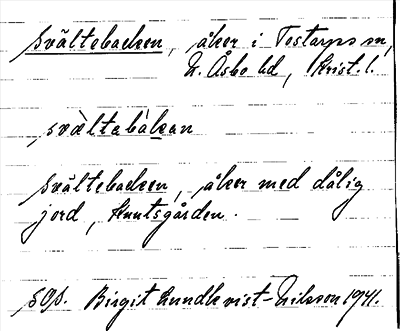 Svältebacken, åker i Tostarps sn,
N. Åsbo hd, Krist. l.
svæ̀ltabàkan
Svältebacken, åker med dålig
jord, Knutsgården.
sgs. Birgit Lundkvist-Nilsson 1941.